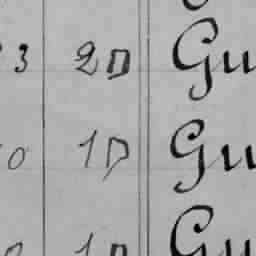 3 2D Gu
0 1D Gu
1D Gu